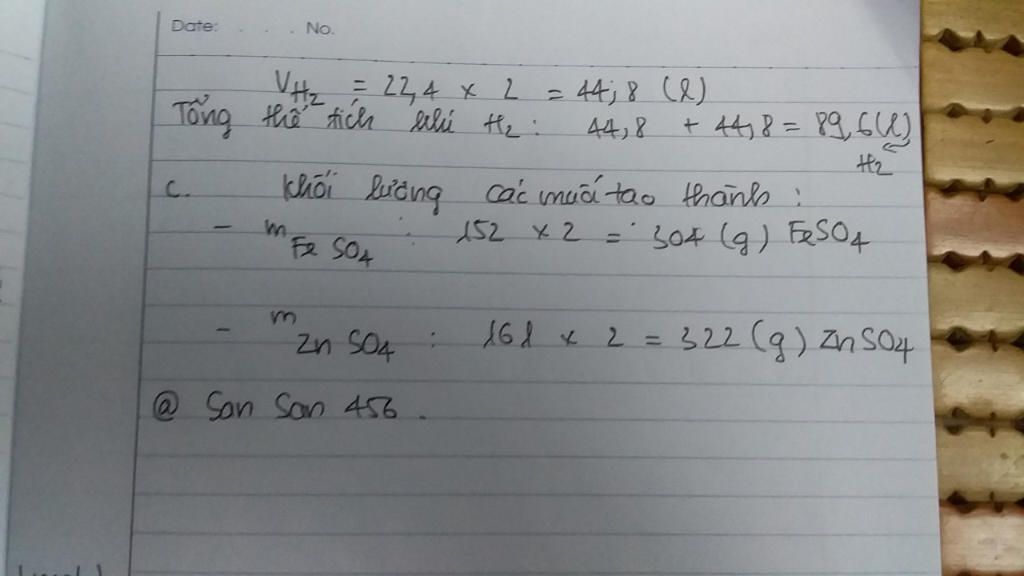 Date: . . . No.
V H2 = 22,4 x 2 = 44,8 (l)
Tổng thể tích khí H2 : 44,8 + 44,8 = 89,6 (l)
H2
c. Khối lượng các muối tạo thành :
- m FeSO4 : 152 x 2 = 304 (g) FeSO4
- m ZnSO4 : 161 x 2 = 322 (g) ZnSO4
@ San San 456 .